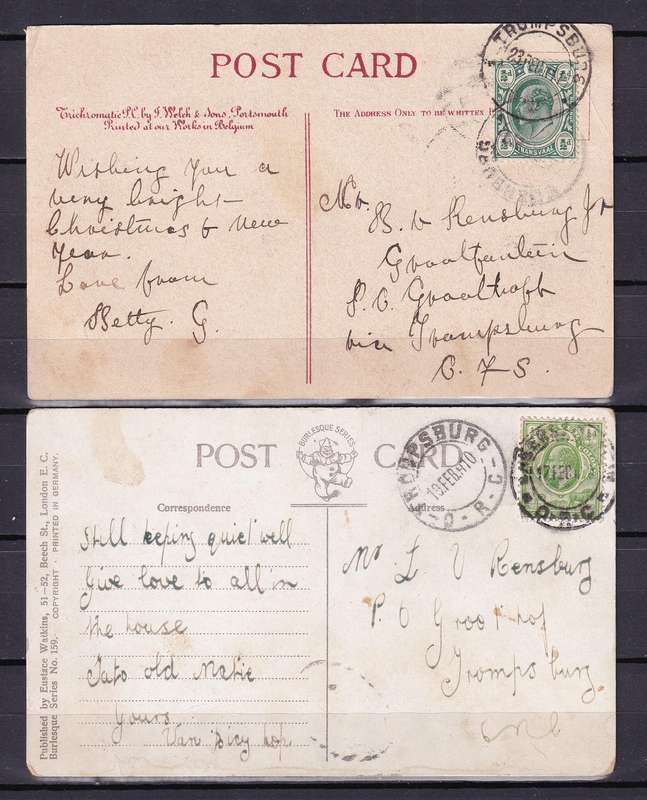 POST CARD
Trichromatic P.C. by F. Welch & Sons, Portsmouth
Printed at our Works in Belgium
THE ADDRESS ONLY TO BE WRITTEN
TROMPSBURG
23
½d ½d
TRANSVAAL
Wishing you a
very bright
Christmas & New
Year.
Love from
Betty. G.
Mr.
B. v Rensburg Jr
Grootfontein
P.O. Groothoff
via Trompsburg
O. F. S.
POST CARD
BURLESQUE SERIES
TROMPSBURG
19 FEB 10
O.R.C
17 FEB
O.R.C
Correspondence
Address
Published by Eustace Watkins, 51-52, Beech St., London E. C.
Burlesque Series No. 159. COPYRIGHT · PRINTED IN GERMANY.
Still keeping quiet well
Give love to all in
the house
old
Yours
Van
Mr L V Rensburg
P. O Groothof
Tromps
burg